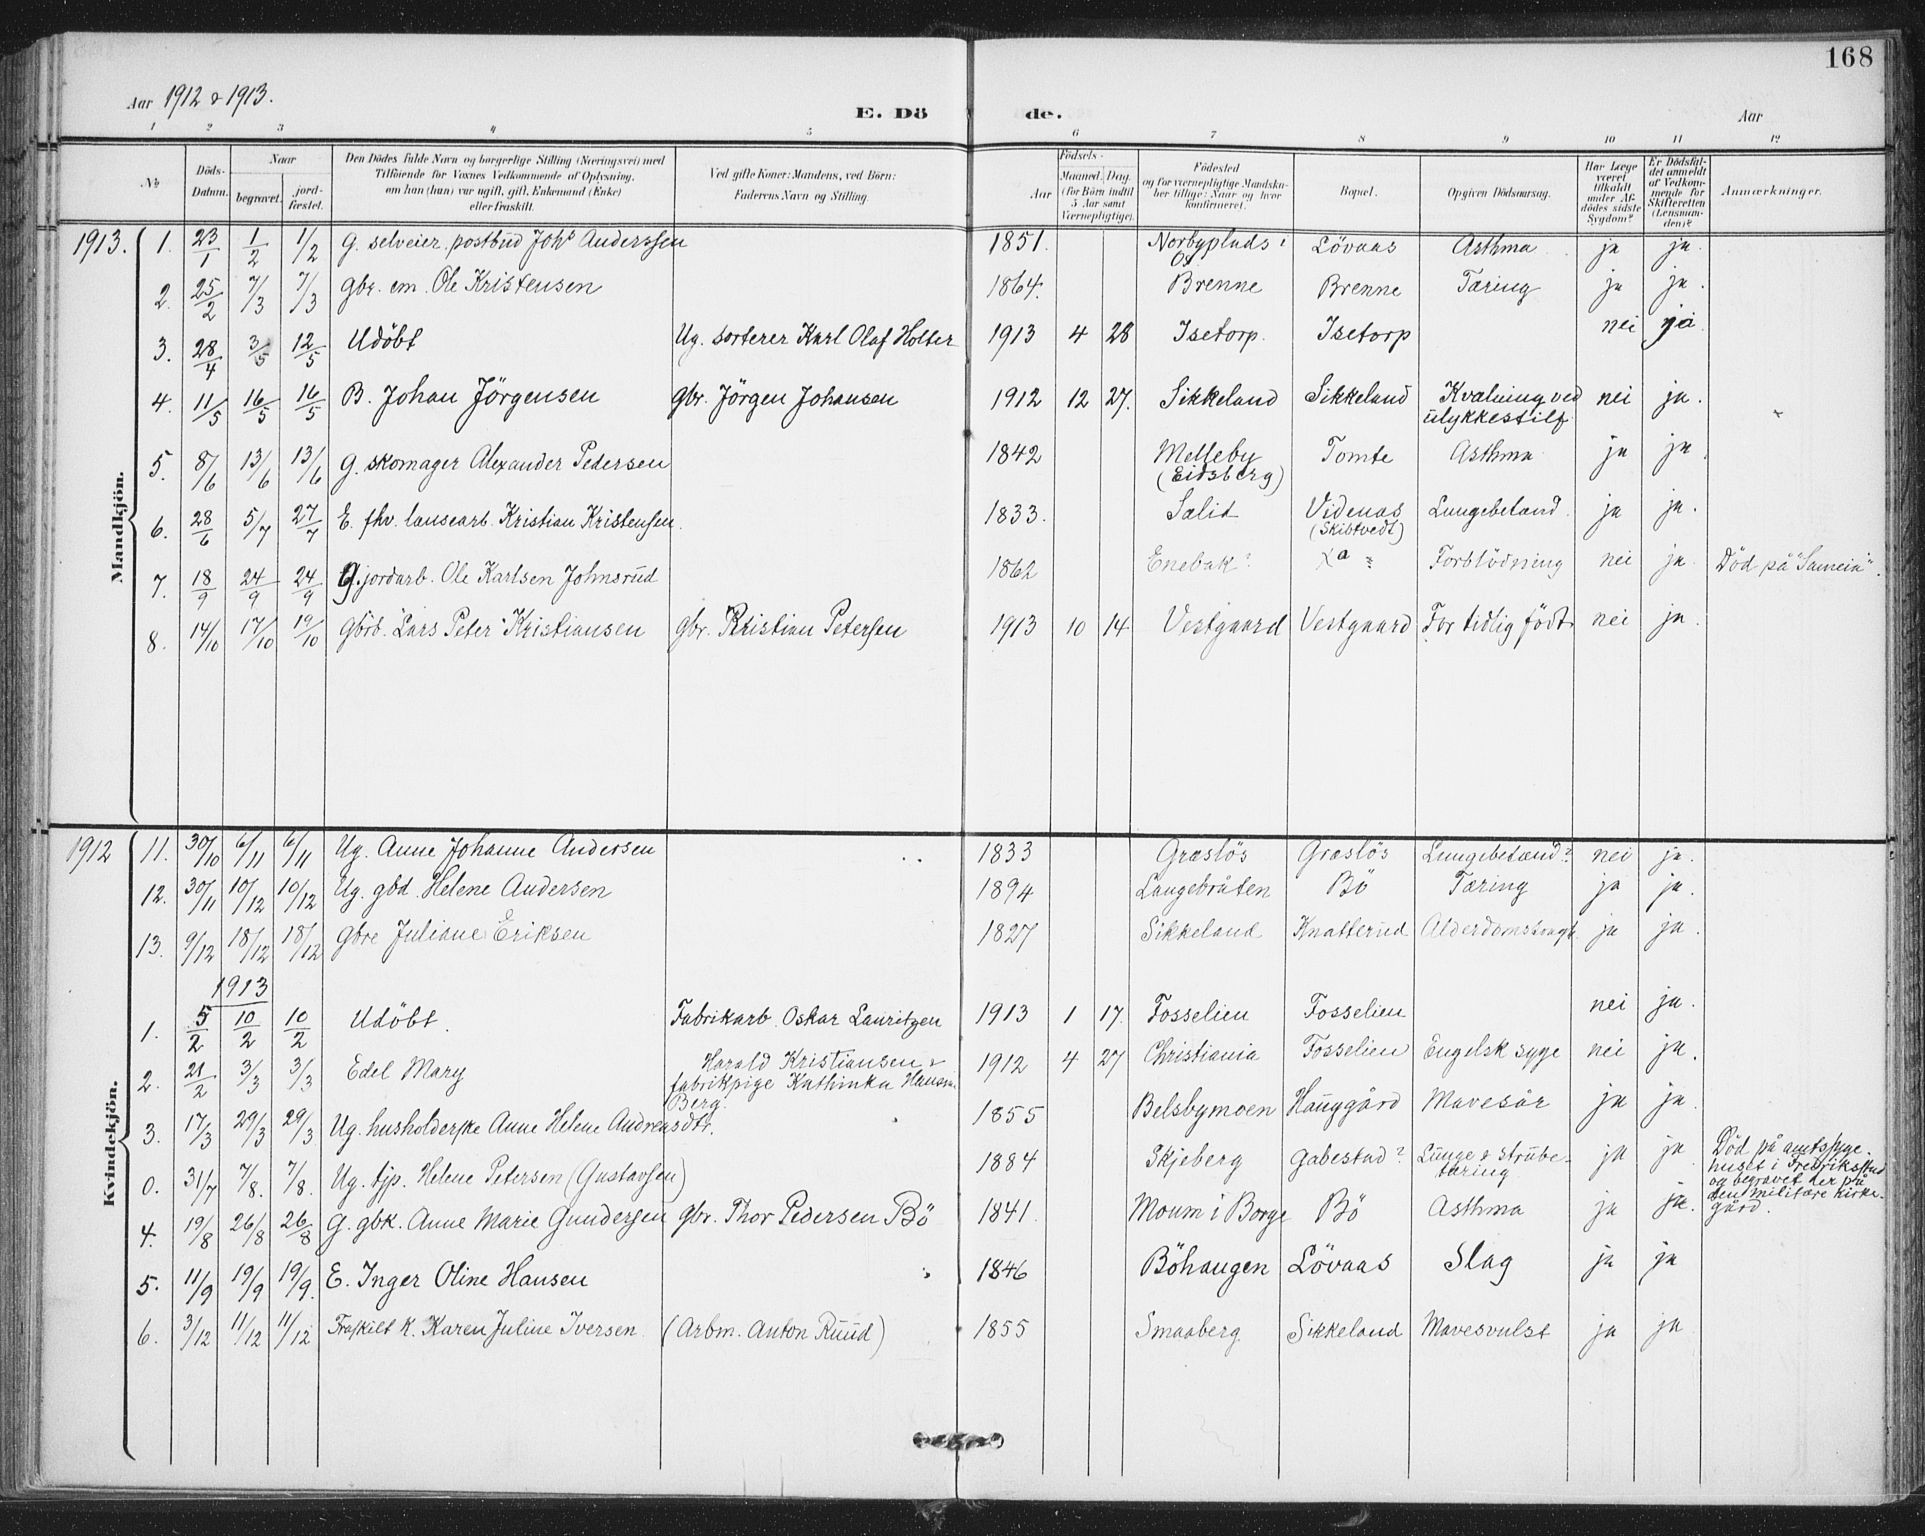 168
Aar 1912 & 1913.
E. Döde.
Aar
1 2 3 4 5 6 7 8 9 10 11 12
No
Döds-Datum.
Naar
begravet.
jord-fæstet.
Den Dödes fulde Navn og borgerlige Stilling (Næringsvei) med
Tilföiende for Voxnes Vedkommende af Oplysning,
om han (hun) var ugift, gift, Enkemand (Enke)
eller fraskilt.
Ved gifte Koner: Mandens, ved Börn:
Faderens Navn og Stilling.
Födsels-
Aar
Maaned. Dag.
(for Börn indtil
5 Aar samt
Værnepligtige).
Födested
og for værnepligtige Mandskaber tillige: Naar og hvor
konfirmeret.
Bopæl.
Opgiven Dödsaarsag.
Har Læge
været
tilkaldt
under Afdödes sidste
Sygdom?
Er Dödsfaldet anmeldt
af Vedkommende for
Skifteretten
(Lensmanden)?
Anmærkninger.
Mandkjön.
1913. 1. 23/1 1/2 1/2 G. selveier. postbud Johs Anderssen 1851. Norbyplads i Os Lövaas Asthma ja ja.
2. 25/2 7/3 7/3 gbr. em. Ole Kristensen 1864. Brenne Brenne Tæring ja ja.
3. 28/4 3/5 12/5 Udöbt Ug. sorterer Karl Olaf Holter 1913 4 28 Isetorp. Isetorp nei ja
4. 11/5 16/5 16/5 B. Johan Jörgensen gbr. Jörgen Johansen 1912 12 27. Sikkeland Sikkeland Kvælning ved nei ja.
ulykkestilf
5. 8/6 13/6 13/6 G. skomager Alexander Pedersen 1842 Melleby Tomte Asthma ja ja
(Eidsberg)
6. 28/6 5/7 27/7 E. fhv. lausearb. Kristian Kristensen. 1833. Sælid Videnæs Lungebetænd. ja ja.
(Skibtvedt)
7. 18/9 24/9 24/9 G. jordarb. Ole Karlsen Johnsrud 1862 Enebak? Forblödning nei ja. Död på "Samein".
8. 14/10 17/10 19/10 gbrb. Lars Peter Kristiansen gbr. Kristian Petersen 1913 10 14 Vestgaard Vestgaard For tidlig födt nei ja.
Kvindekjön.
1912 11. 30/10 6/11 6/11 Ug. Anne Johanne Andersen 1833 Græslös Græslös Lungebetænd? nei ja.
12. 30/11 10/12 10/12 Ug. gbd. Helene Andersen 1894 Langebråten Bö Tæring ja ja.
13. 9/12 18/12 18/12 gbre Juliane Eriksen 1827 Sikkeland Knatterud Alderdomssvagh ja ja.
1913
1. 5/2 10/2 10/2 Udöbt. Fabrikarb. Oskar Lauritzen 1913 1 17. Fosselien Fosselien nei ja.
2. 21/2 3/3 3/3 Edel Mary Harald Kristiansen & 1912 4 27 Christiania Fosselien Engelsk syge nei ja.
fabrikpige Kathinka Hansen
Berg.
3. 17/3 29/3 29/3 Ug. husholderske Anne Helene Andreasdtr. 1855 Belsbymoen Hauggård Mavesår ja ja.
0. 31/7 7/8. 7/8. Ug. tjp. Helene Petersen (Gustavsen) 1884 Skjeberg Gabestad? Lunge & strube- ja ja Död på amtssyge-
tæring
huset i Fredrikstad
og begravet der på
den militære kirke-
gård.
4. 19/8 26/8 26/8 G. gbk. Anne Marie Gundersen gbr. Thor Pedersen Bö 1841. Moum i Borge Bö Asthma ja ja.
5. 11/9 19/9 19/9. E. Inger Oline Hansen 1846 Böhaugen Lövaas Slag ja ja
6. 3/12 11/12 11/12 Fraskilt k. Karen Juline Iversen (Arbm. Anton Ruud) 1855 Smaaberg Sikkeland Mavesvulst ja ja